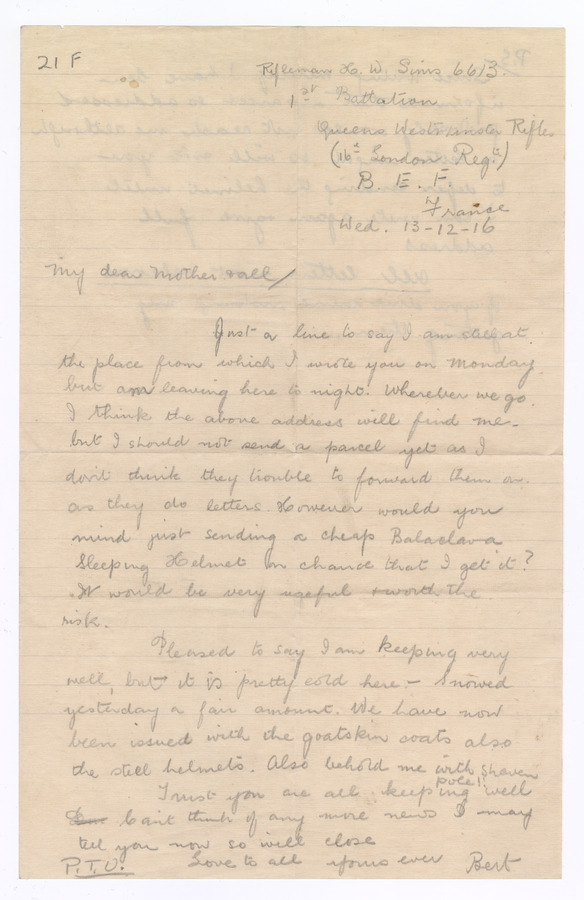 21 F
Rifleman H. W. Sims 6613
1st Battalion
Queens Westminster Rifles
(16th London Regt)
B. E. F.
France
Wed. 13-12-16
My dear Mother & all/
Just a line to say I am still at
the place from which I wrote you on Monday
but am leaving here to night. Wherever we go
I think the above address will find me -
but I should not send a parcel yet as I
don't think they trouble to forward them on
as they do letters. However would you
mind just sending a cheap Balaclava
Sleeping Helmet on chance that I get it?
It would be very useful & worth the
risk.
Pleased to say I am keeping very
well, but it is pretty cold here - snowed
yesterday a fair amount. We have now
been issued with the goatskin coats also
the steel helmets. Also behold me with shaven
pole!!
Trust you are all keeping well
Can't think of any more news I may
tell you now so will close
P.T.O. Love to all yours ever Bert